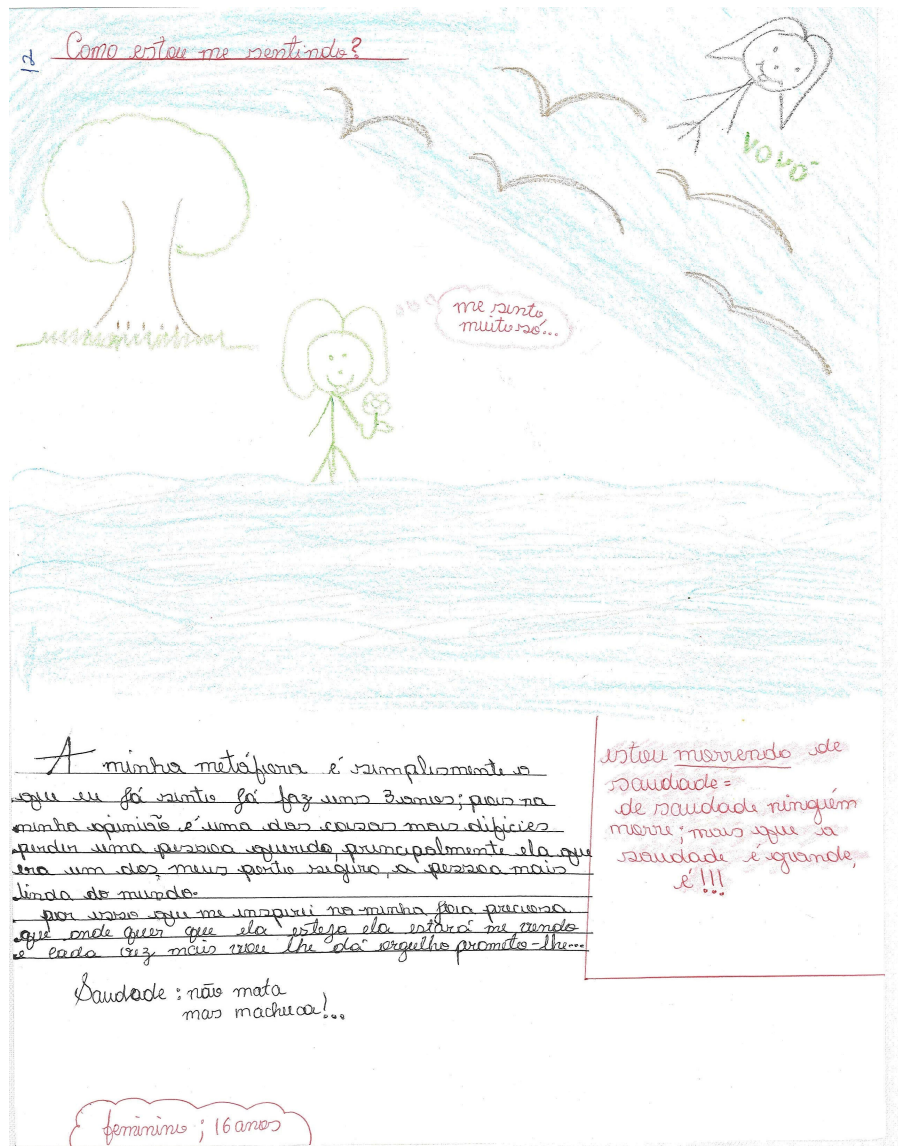 12
Como estou me sentindo?
VOVÓ
me sinto
muito só...
A minha metáfora é simplismente o
que eu já sinto já faz uns 3 anos; pois na
minha opinião é uma das coisas mais dificies
perder uma pessoa querida, principalmente ela que
era um dos meus porto seguro, a pessoa mais
linda do mundo.
por isso que me inspirei na minha joia preciosa
que onde quer que ela esteja ela estará me vendo
e cada vez mais vou lhe dá orgulho prometo-lhe...
Saudade: não mata
mas machuca!...
estou morrendo de
saudade=
de saudade ninguém
morre; mais que a
saudade é grande,
é!!!
feminino; 16 anos